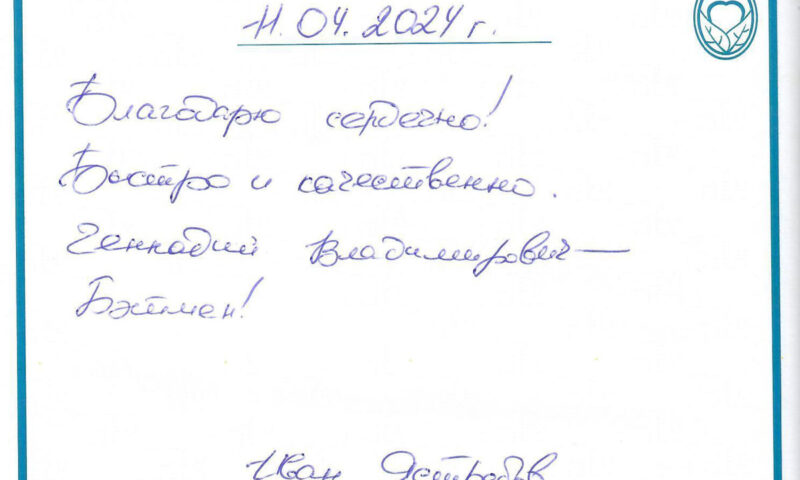 11.04.2024 г.
Благодарю сердечно!
Быстро и качественно.
Геннадий Владимирович —
Бэтмен!
Иван